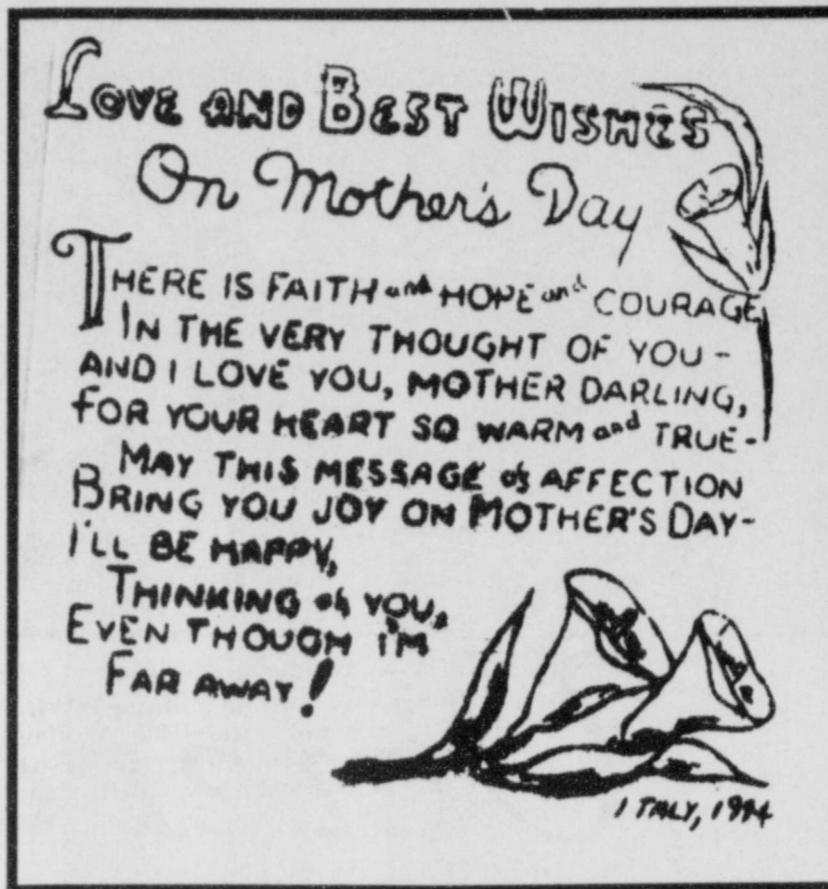 LOVE AND BEST WISHES
On Mother's Day
THERE IS FAITH and HOPE and COURAGE
IN THE VERY THOUGHT OF YOU -
AND I LOVE YOU, MOTHER DARLING,
FOR YOUR HEART SO WARM and TRUE -
MAY THIS MESSAGE of AFFECTION
BRING YOU JOY ON MOTHER'S DAY -
I'LL BE HAPPY,
THINKING of YOU,
EVEN THOUGH I'M
FAR AWAY!
ITALY, 1994